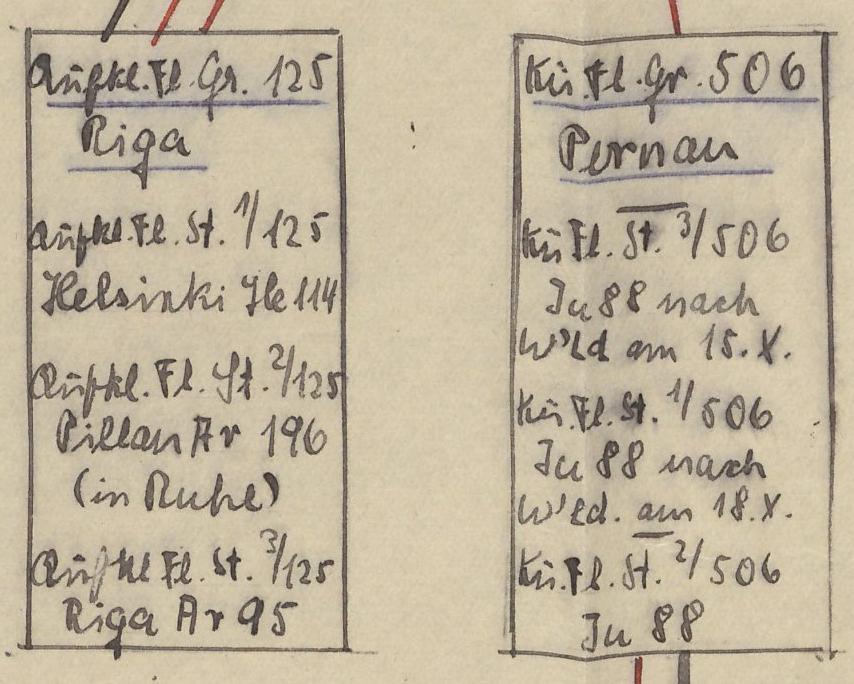 Aufkl. Fl. Gr. 125
Riga
Aufkl. Fl. St. 1/125
Helsinki He 114
Aufkl. Fl. St. 2/125
Pillau Ar 196
(in Ruhe)
Aufkl Fl. St. 3/125
Riga Ar 95
Kü. Fl. Gr. 506
Pernau
Kü. Fl. St. 3/506
Ju 88 nach
W'ld am 15. X.
Kü. Fl. St. 1/506
Ju 88 nach
W'ld. am 18. X.
Kü. Fl. St. 2/506
Ju 88